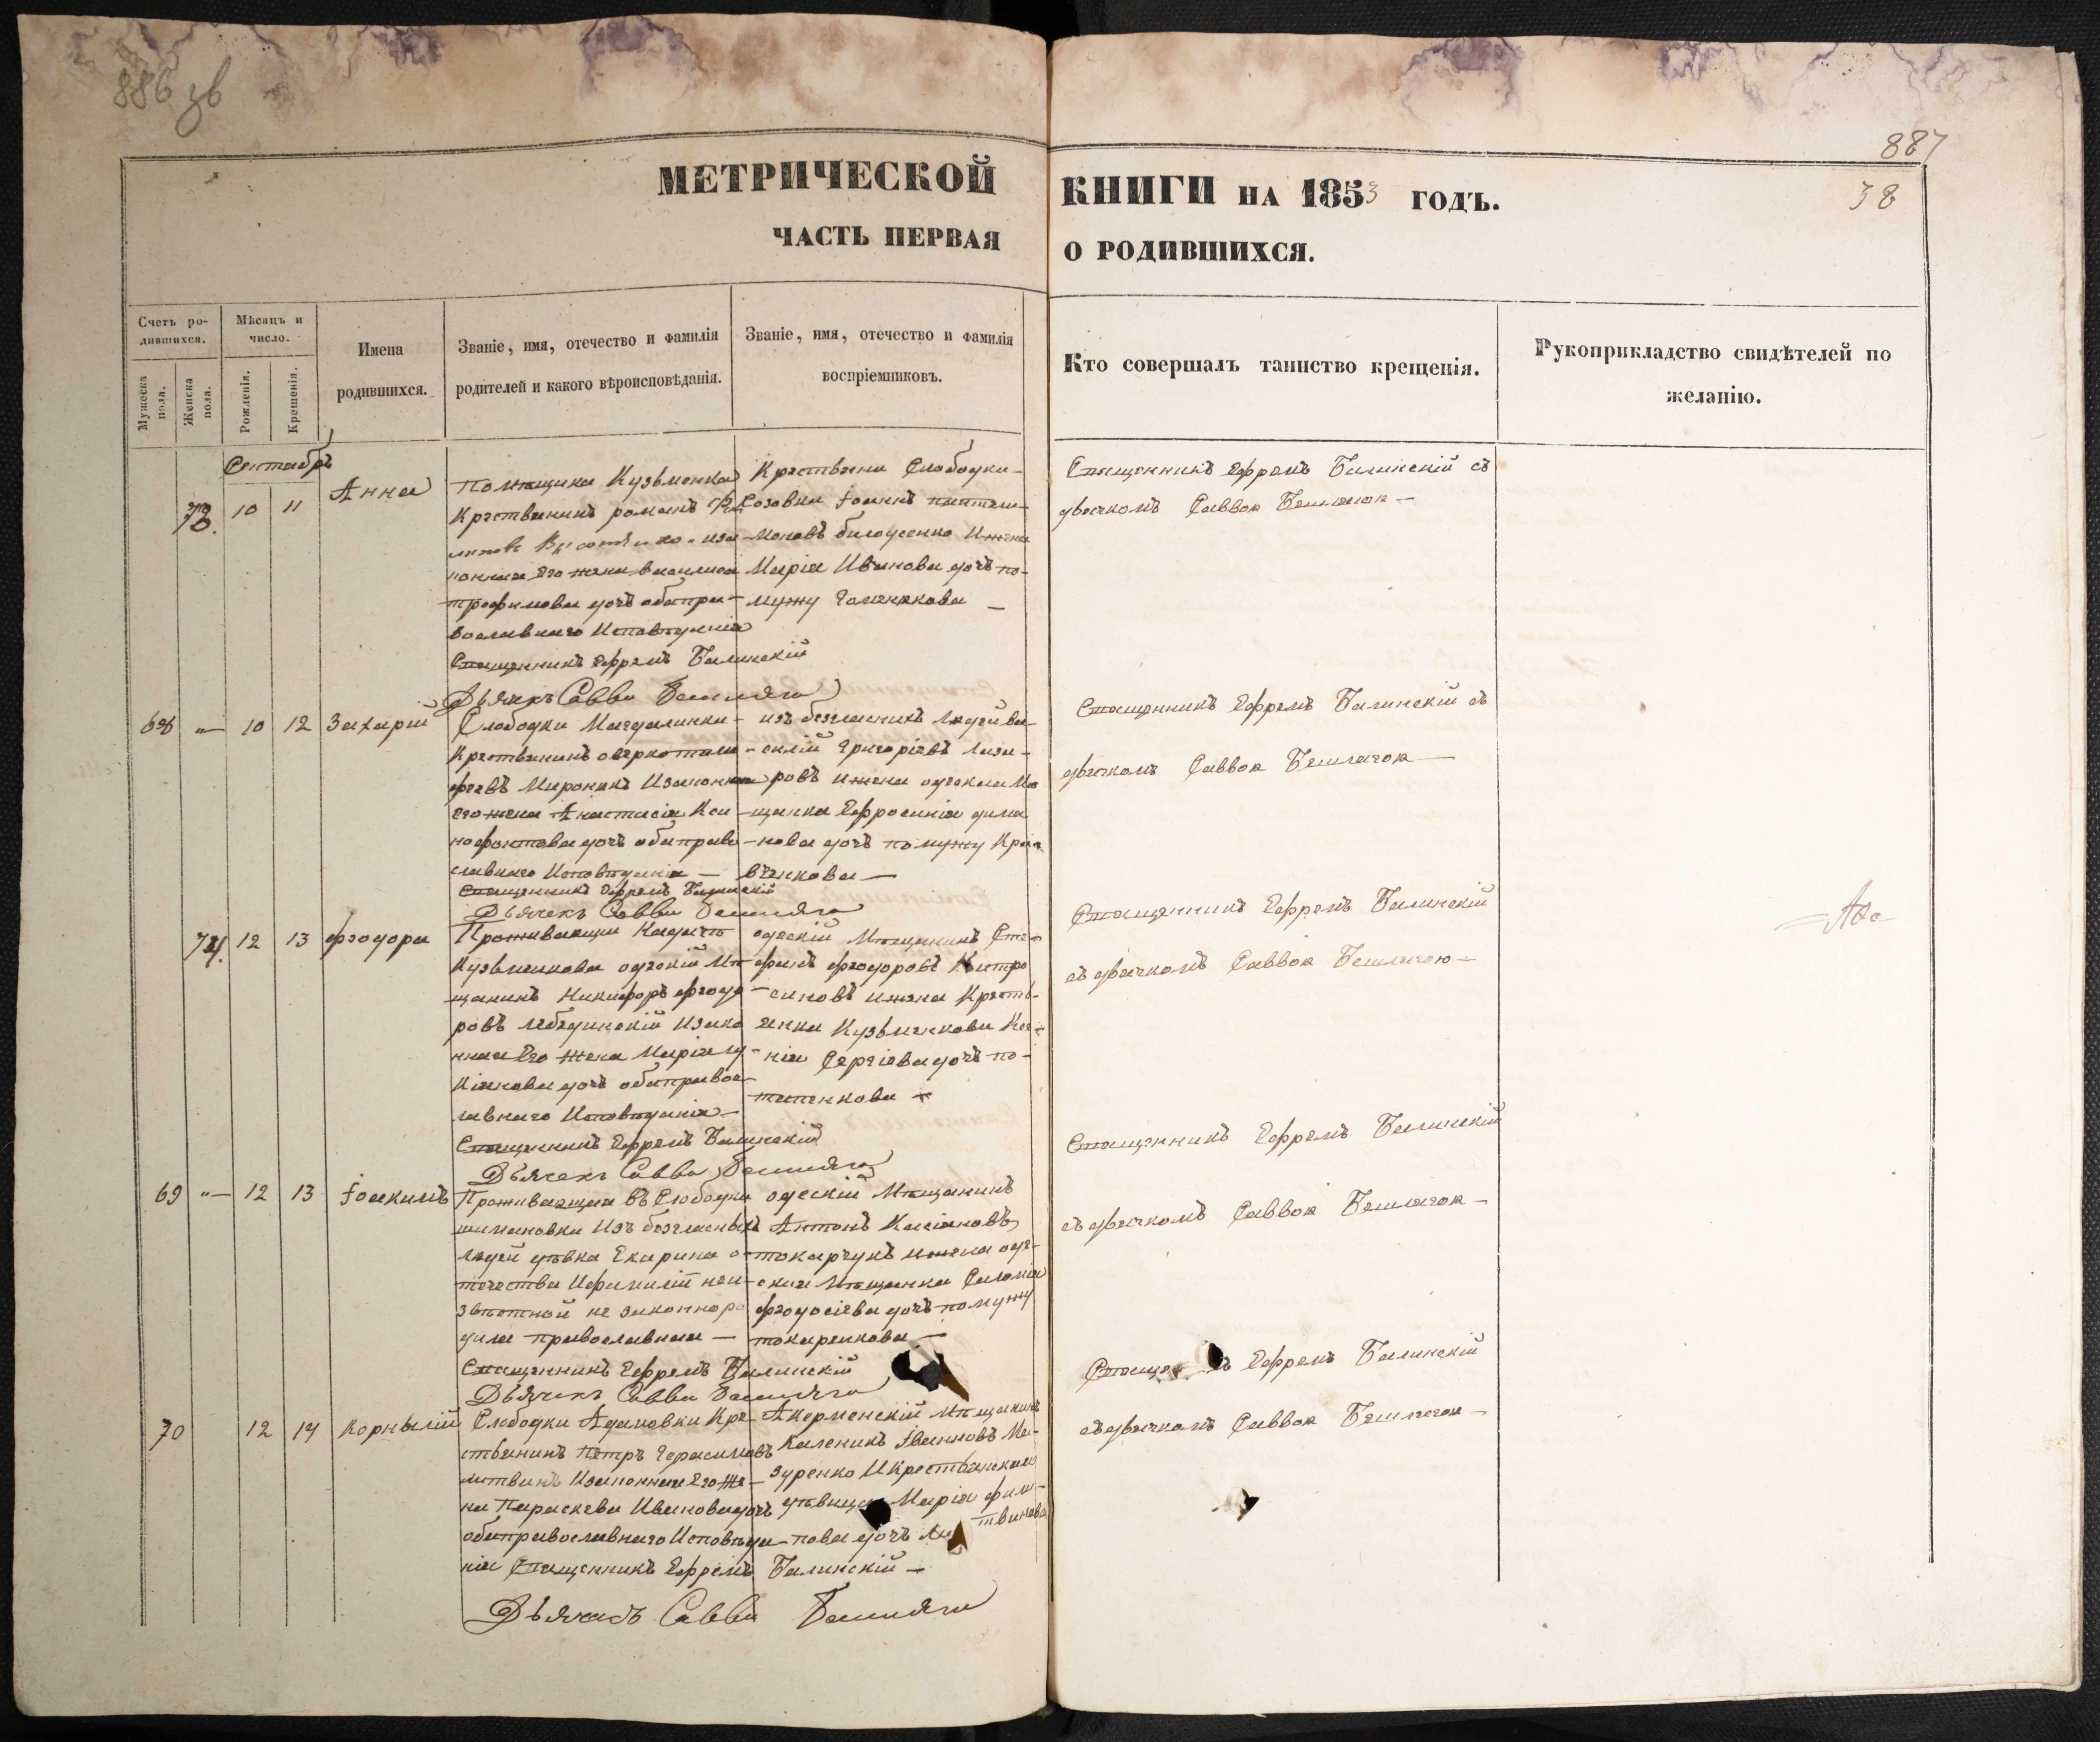 886 зв
887
38
МЕТРИЧЕСКОЙ КНИГИ НА 1853 ГОДЪ.
ЧАСТЬ ПЕРВАЯ О РОДИВШИХСЯ.
Счетъ ро-
дившихся.
Мужеска пола.
Женска пола.
Мѣсяцъ и
число.
Рожденія.
Крещенія.
Имена
родившихся.
Званіе, имя, отечество и фамилія
родителей и какого вѣроисповѣданія.
Званіе, имя, отечество и фамилія
воспріемниковъ.
Кто совершалъ таинство крещенія.
Рукоприкладство свидѣтелей по
желанію.
Сентябрь
73. 10 11 Анна
помѣщика Кузьменка
Крестьянинъ романъ
изза
конная Его жена василиса
трофимова дочь оба пра-
вославнаго Исповѣданія
Священникъ Ефремъ Балинскій
Дьячекъ Савва Бешляга
Крестьяни Слободки
Созовки Іоаннъ пантели-
моновъ билоусенко И жена
Марія Иванова дочь по-
мужу
Священникъ Ефремъ Балинскій съ
дьячкомъ Саввою Бешлягою —
68 "— 10 12 Захарій
Слободки Магдалинки
Крестьянинъ оверко тимо-
феевъ Мироникъ Изаконная
его жена Анастасія Ксе-
нофонтова дочь оба право-
славнаго Исповѣданія —
Священникъ Ефремъ Балинскій
Дьячекъ Савва Бешляга
изъ безгласныхъ людей ва-
силій Григоріевъ лаза-
ровъ и жена одескаа Мѣ
щанка Ефросинія дами
нова дочь по мужу Крав
ченкова —
Священникъ Ефремъ Балинскій съ
дьячкомъ Саввою Бешлягою —
74. 12 13 феодора
Проживающи
Кузьменкова одескій Мѣ
щанинъ Никифоръ феодо
ровъ лебединскій Изако
нная Его жена Марія лу
кіанова дочь оба правос-
лавнаго Исповѣданія —
Священникъ Ефремъ Балинскій
Дьячекъ Савва Бешляга
одескій Мѣщанинъ Сте-
фанъ феодоровъ Митро
синовъ и жена Кресть-
янки Кузьменкова Ксе-
нія Сергіева дочь по-
тапенкова —
Священникъ Ефремъ Балинскій
съ дьячкомъ Саввою Бешлягою —
69 "— 12 13 Іоакимъ
Проживающая въ Слободки
шимановки Изъ безгласныхъ
людей дѣвка Екарина о-
течества Ифамиліи неи-
звѣстной не законноро
дила православная —
Священникъ Ефремъ Балинскій
Дьячекъ Савва Бешляга
одескій Мѣщанинъ
Антонъ Касіановъ
токарчукъ и жена оде-
ская Мѣщанка Саломія
феодосіева дочь по мужу
токаренкова —
Священникъ Ефремъ Балинскій
съ дьячкомъ Саввою Бешлягою —
70 12 14 Корнылій
Слободки Адамовки Кре-
стьянинъ Петръ Герасимовъ
литвинъ Изаконная Его же-
на Параскева Иванова дочь
оба православнаго Исповѣда-
нія Священникъ Ефремъ Балинскій —
Дьячекъ Савва Бешляга
Акерменскій Мѣщанинъ
Каленикъ Іванновъ Ма-
зуренко И Крестьянская
дѣвица Марія фили-
пова дочь Литвинова
Священ ъ Ефремъ Балинскій
съ дьячкомъ Саввою Бешлягою —